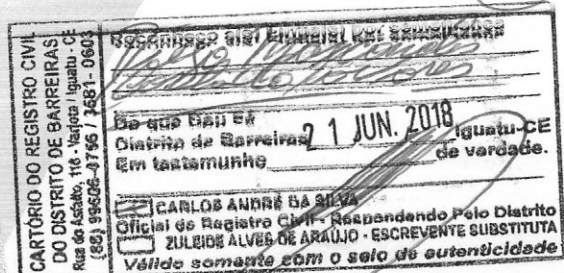 CARTÓRIO DO REGISTRO CIVIL
DO DISTRITO DE BARREIRAS
Rua do Asfalto, 116 - Varjota / Iguatu - CE
(88) 99606-8756 / 3581-0603
Reconheço a(s) Firma(s) por
Do que Dou Fé
Distrito de Barreiras 21 JUN. 2018 Iguatu-CE
Em testemunho da verdade.
CARLOS ANDRÉ DA SILVA
Oficial de Registro Civil - Respondendo Pelo Distrito
ZULEIDE ALVES DE ARAÚJO - ESCREVENTE SUBSTITUTA
Válido somente com o selo de autenticidade